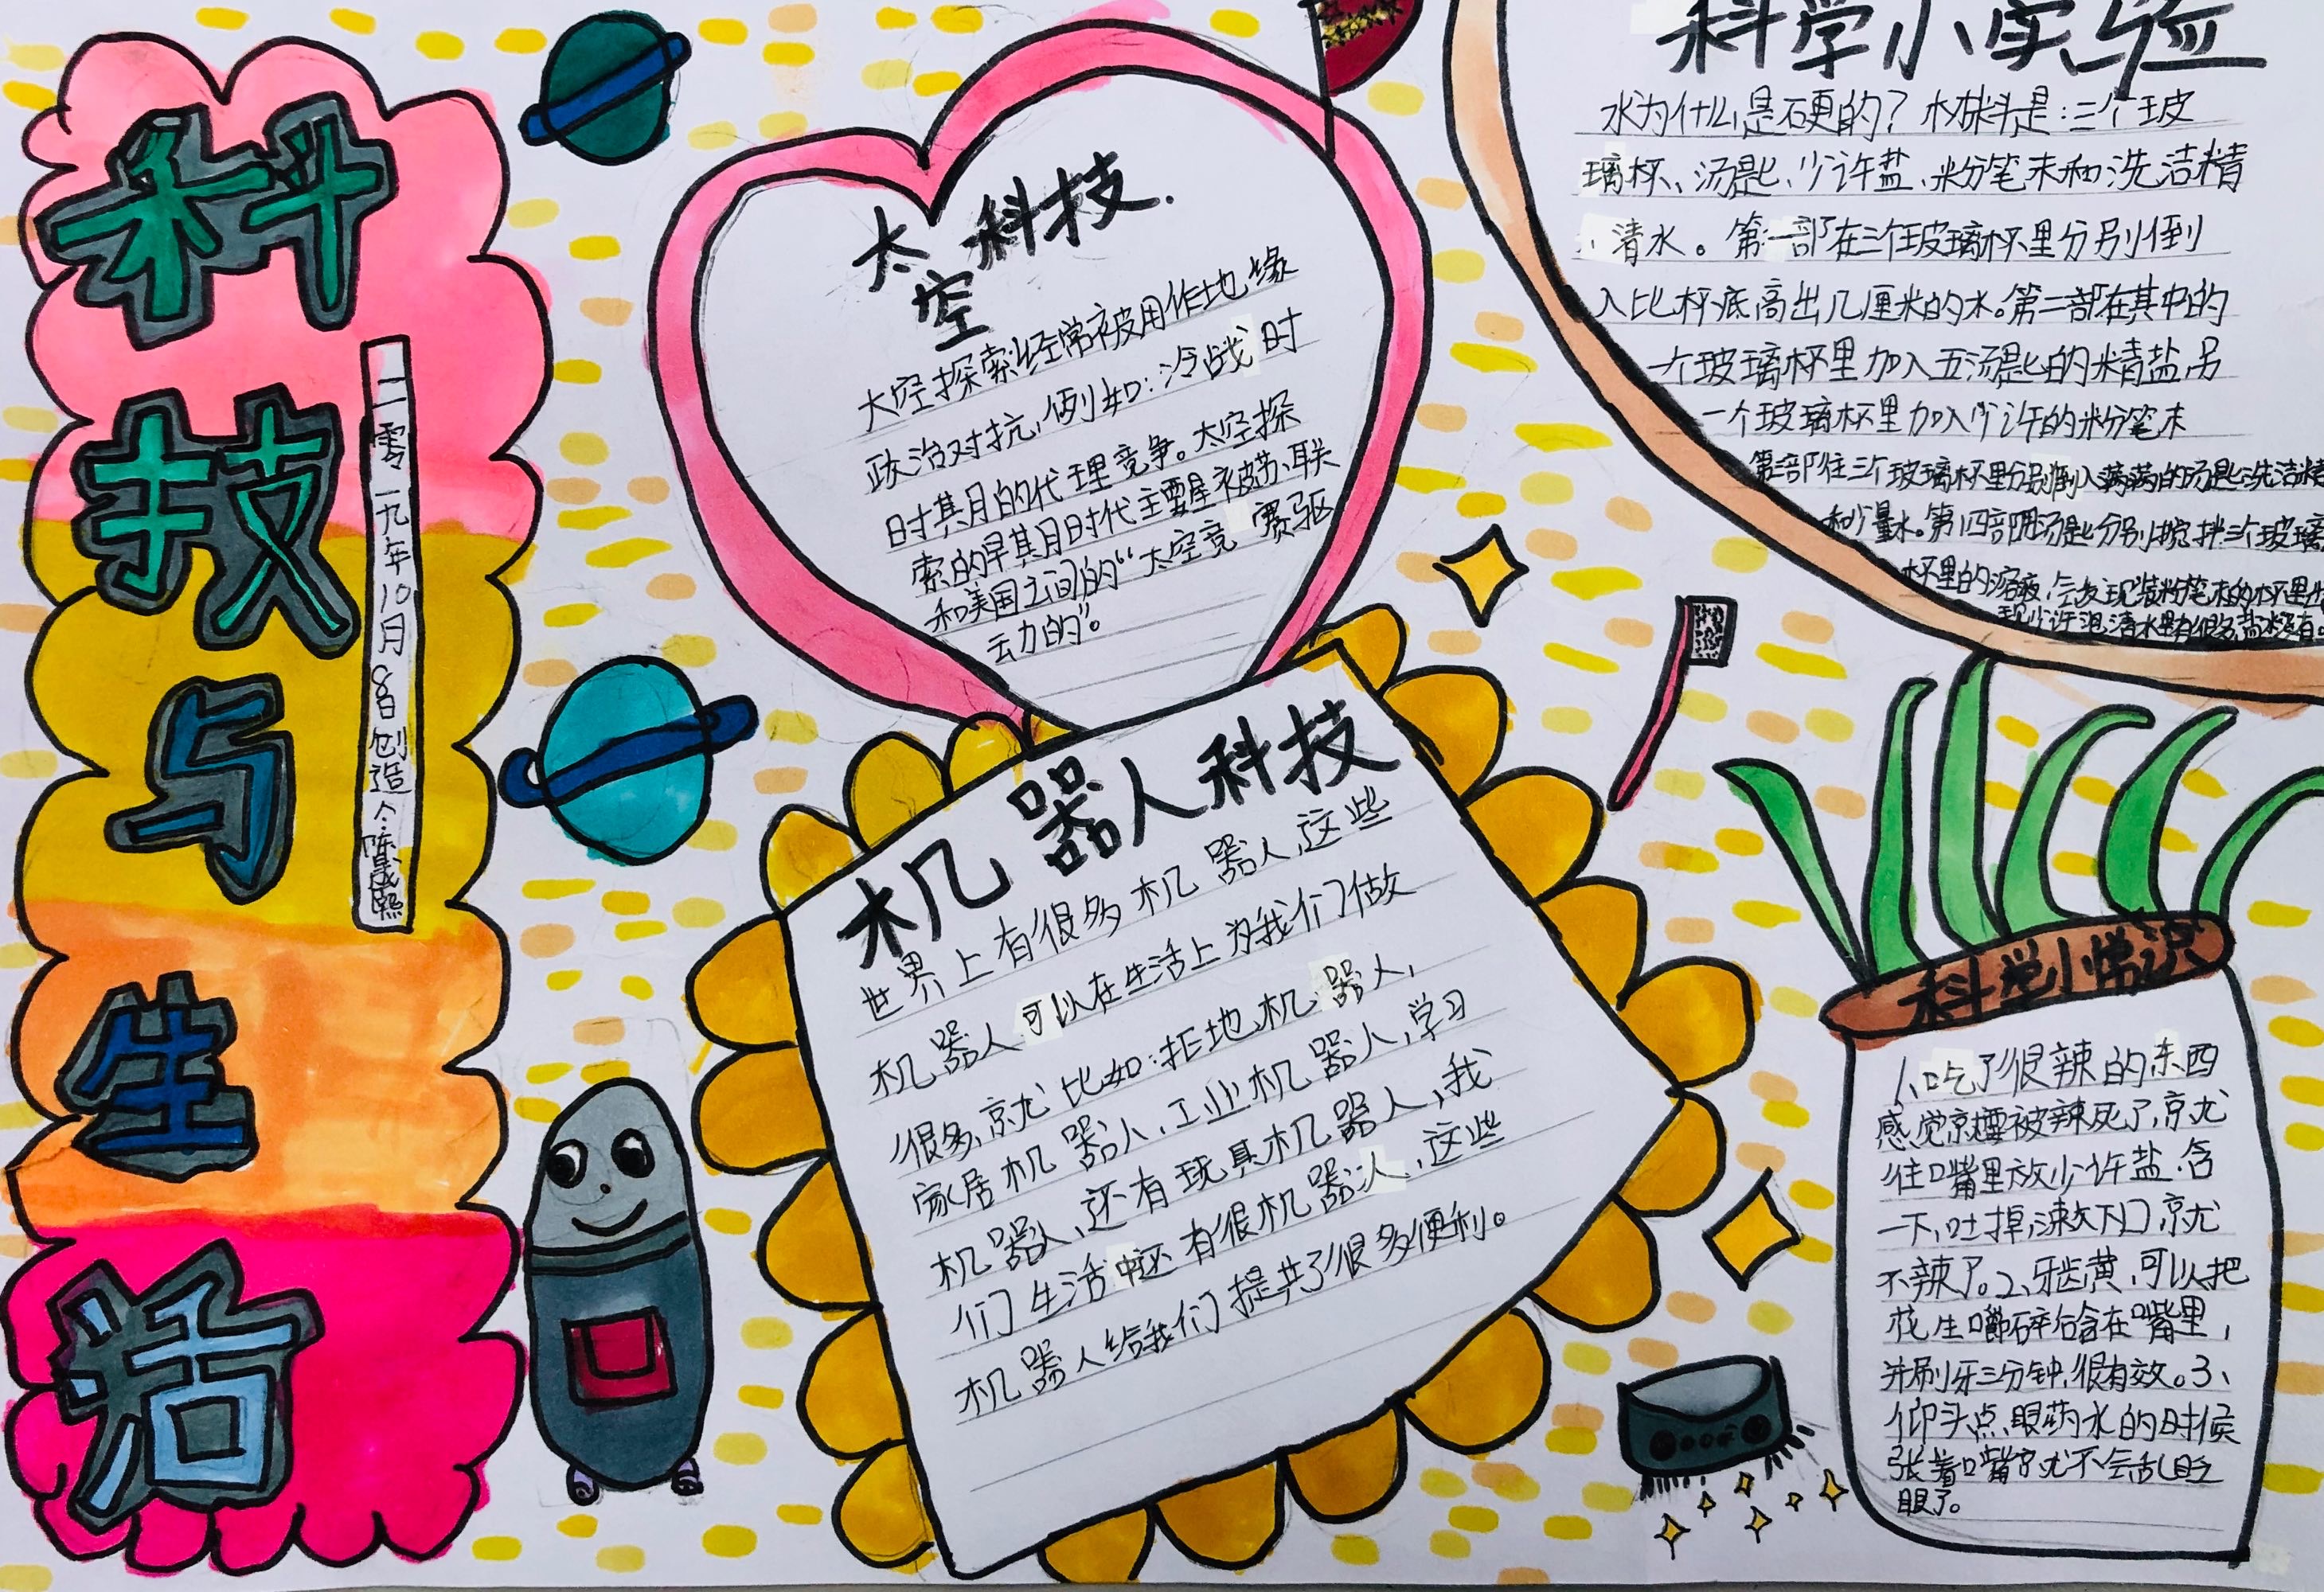 科技与生活
二零一九年10月8日创造
太空科技.
太空探索经常被用作地缘
政治对抗,例如:冷战时
时其月的代理竞争。太空探
索的早其月时代主要是被苏联
和美国之间的“太空竞赛驱
云力的”。
机器人科技
世界上有很多机器人,这些
机器人可以在生活上为我们做
很多,就比如:拒地机器人,
家居机器人,工业机器人,学习
机器人,还有玩具机器人,我
们生活中还有很机器人,这些
机器人给我们提共了很多便利。
科学小实验
水为什么是硬的?材料是:三个玻
璃杯、汤匙、少许盐、粉笔末和洗洁精
、清水。第一部在三个玻璃杯里分别倒
入比杯底高出几厘米的水。第二部在其中的
一个玻璃杯里加入五汤匙的精盐,另
一个玻璃杯里加入少许的粉笔末
第三部往三个玻璃杯里分别倒入满满的汤匙洗洁精
和少量水。第四部用汤匙分别搅拌三个玻璃
杯里的溶液,会发现装粉笔末的杯里出
现少许泡,清水里有很多,盐水没有。
科学小常识
1、吃了很辣的东西
感觉就要被辣死了,就
往嘴里放少许盐,含
一下,吐掉,漱下口,就
不辣了。2、牙齿黄,可以把
花生嚼碎后含在嘴里,
并刷牙三分钟,很有效。3、
仰头点眼药水的时候
张着嘴就不会乱眨
眼了。